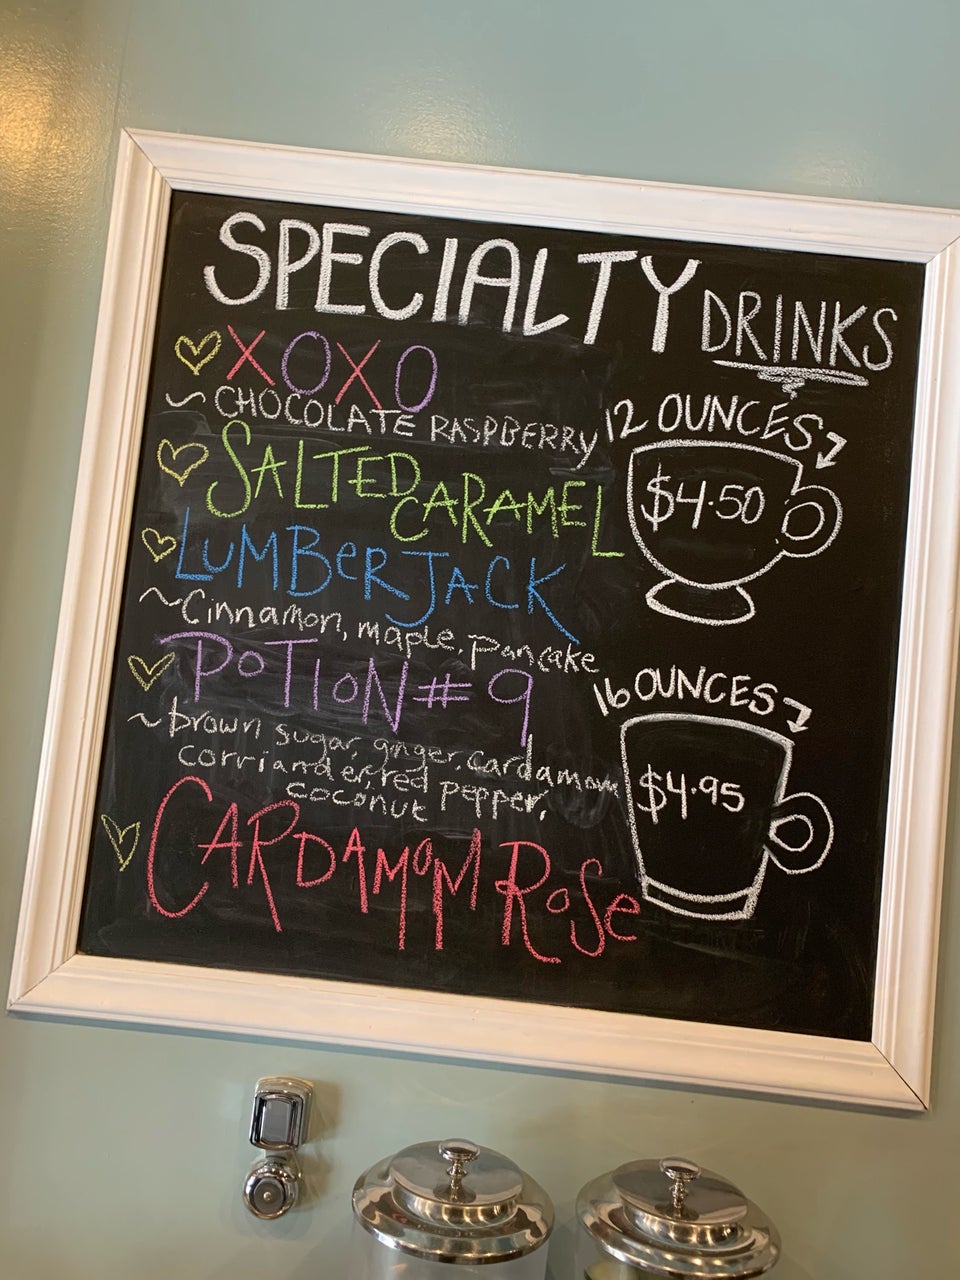 SPECIALTY DRINKS
XOXO
~ CHOCOLATE RASPBERRY
SALTED CARAMEL
LUMBERJACK
~ Cinnamon, maple, pancake
POTION # 9
~ brown sugar, ginger, cardamom
corriander, red pepper,
coconut
CARDAMOM ROSe
12 OUNCES
$4.50
16 OUNCES
$4.95